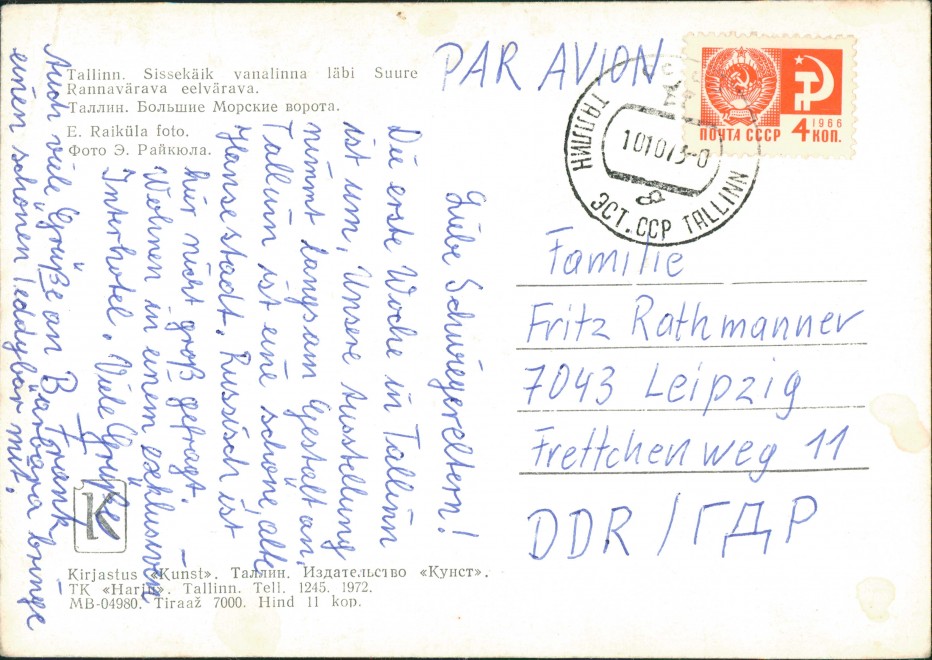 Tallinn. Sissekäik vanalinna läbi Suure
Rannavärava eelvärava.
Таллин. Большие Морские ворота.
E. Raiküla foto.
Фото Э. Райкюла.
PAR AVION
ПОЧТА СССР
1966
4 КОП.
ТАЛЛИН
ЭСТ. ССР TALLINN
Liebe Schwiegereltern!
Die erste Woche in Tallinn
ist um, Unsere Ausstellung
nimmt langsam Gestalt an,
Tallinn ist eine schöne, alte
Hansestadt. Russisch ist
hier nicht groß gefragt.
Wohnen in einem exklusiven
Interhotel. Viele Grüße
Frank
Auch viele Grüße an Barbara bringe
einen schönen Teddybär mit.
Familie
Fritz Rathmanner
7043 Leipzig
Frettchenweg 11
DDR / ГДР
K
Kirjastus «Kunst». Таллин. Издательство «Кунст».
TK «Harju». Tallinn. Tell. 1245. 1972.
MB-04980. Tiraaž 7000. Hind 11 kop.